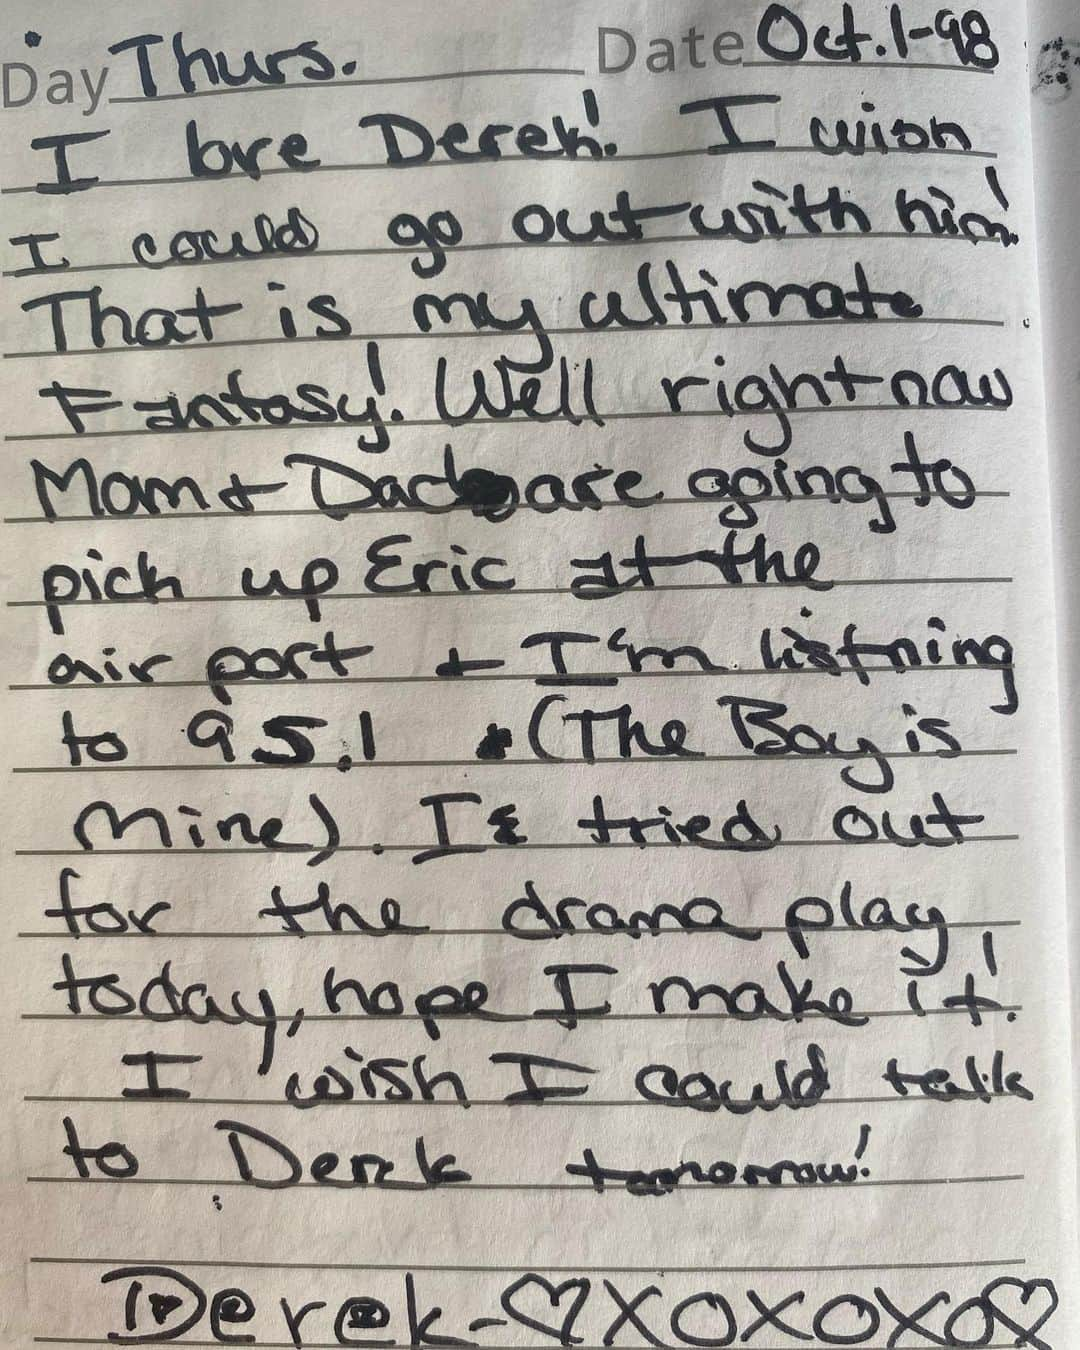 Day Thurs. Date Oct. 1-98
I love Derek! I wish
I could go out with him!
That is my ultimate
Fantasy! Well right now
Mom + Dad are going to
pick up Eric at the
air port + I'm listning
to 95.1 (The Boy is
Mine). I tried out
for the drama play
today, hope I make it!
I wish I could talk
to Derek tomorrow!
Derek-♡XOXOXO♡